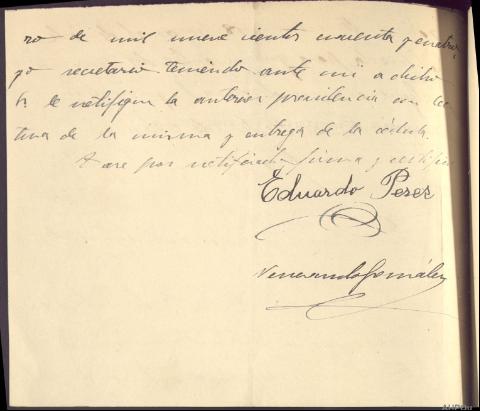 ro de mil nueve cientos cuarenta y cuatro,
yo secretario teniendo ante mi a dicho
le notifique la anterior providencia con lec
tura de la misma y entrega de la cédula.
por notificado, firma y certifico
Eduardo Perez
Venerando González